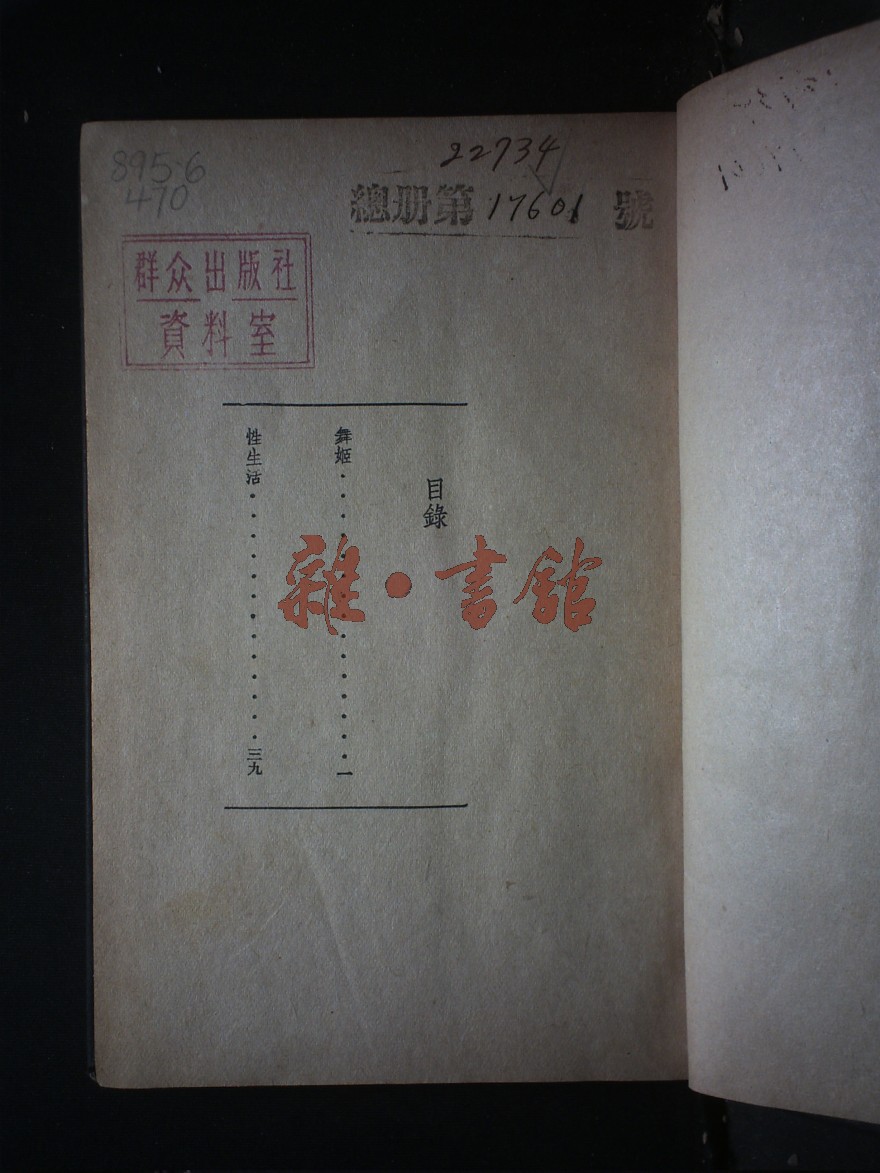 895.6
470
22734
總册第17601號
群众出版社
資料室
目錄
舞姬・・・・・・・・・・・・・・・一
性生活・・・・・・・・・・・・・三九
雜・書館